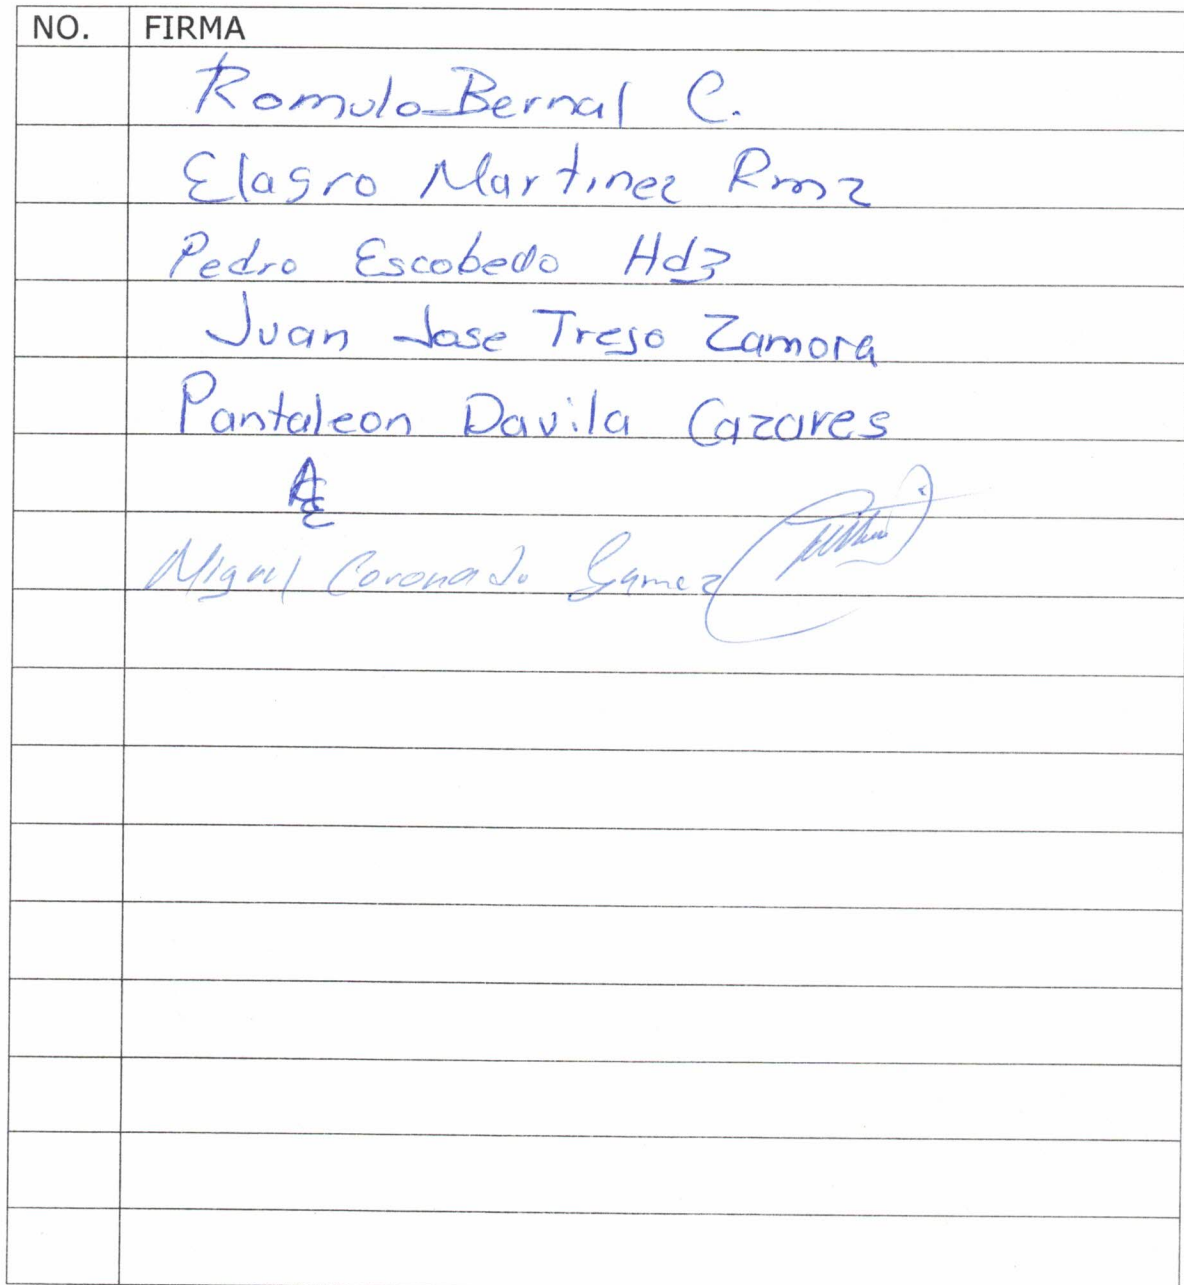 NO. FIRMA
Romulo Bernal C.
Elagro Martinez Rmz
Pedro Escobedo Hdz
Juan Jose Trejo Zamora
Pantaleon Davila Cazares
Miguel Coronado Gamez